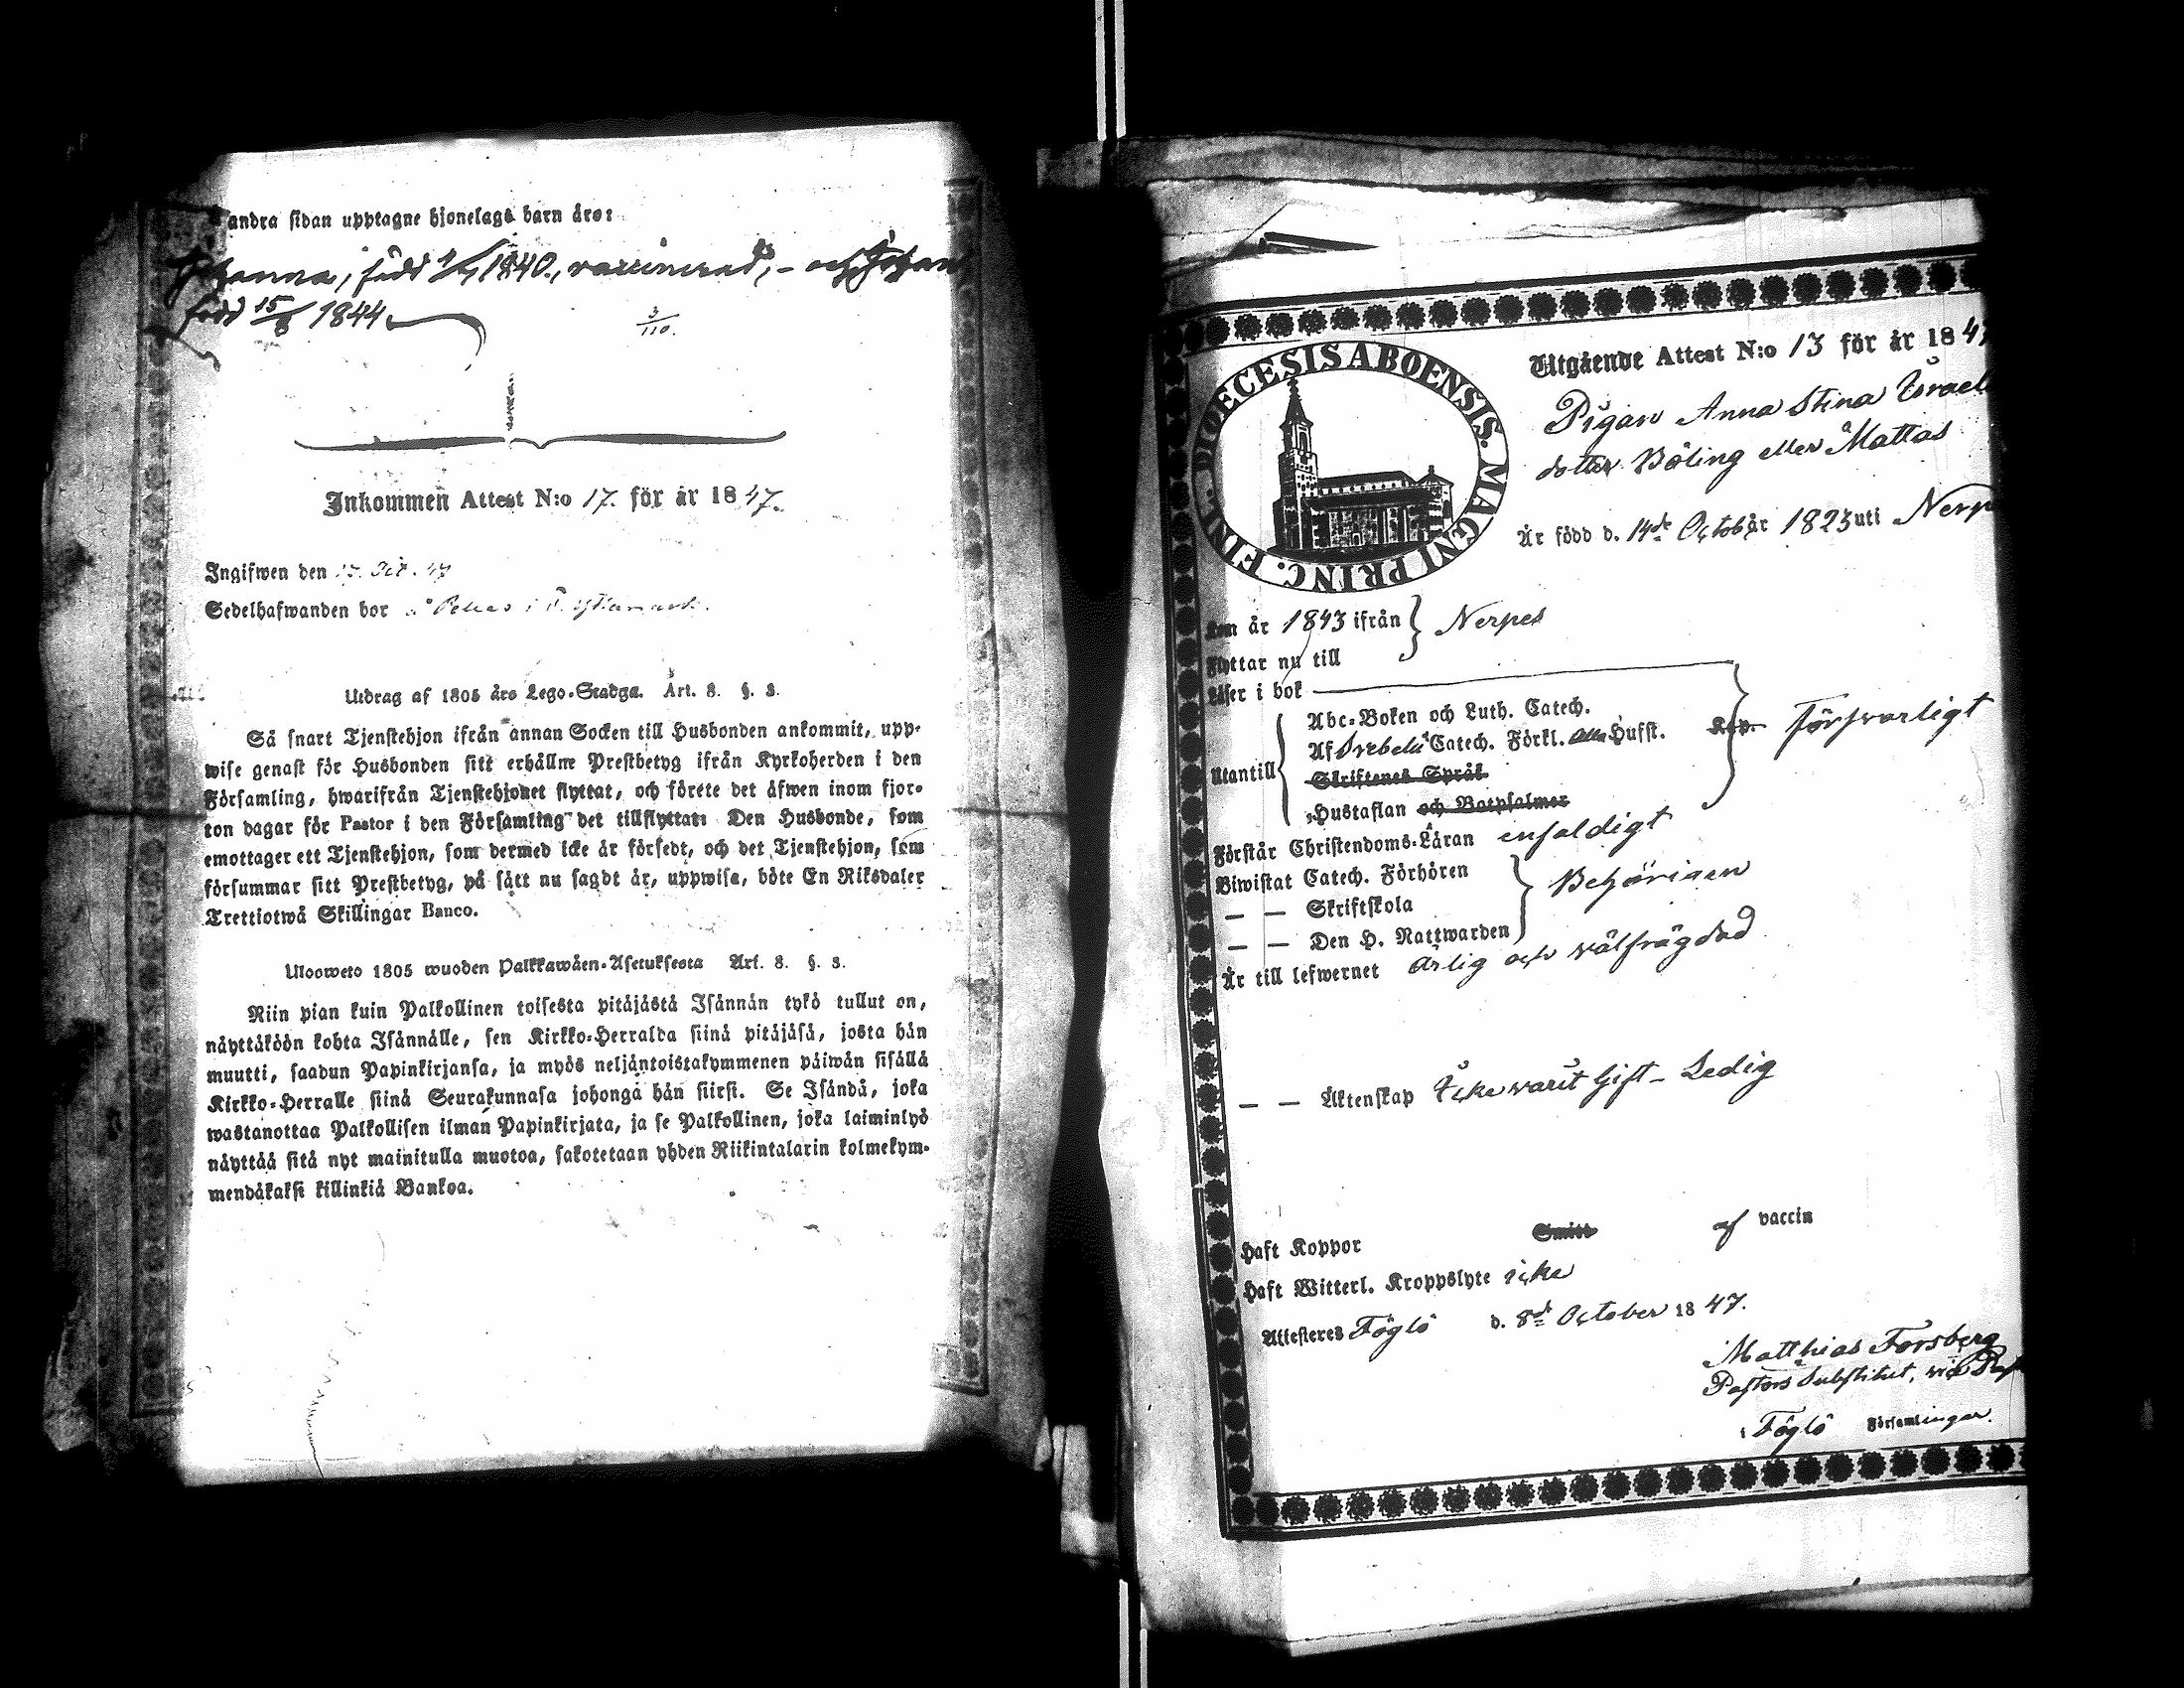 andra sidan upptagne hjonelags barn äro:
Johanna, född 1/4 1840, vaccinerad, - och Johan
född 15/8 1844
3/110.
Inkommen Attest N:o 17. för år 1847.
Ingifwen den 17. Oct. 47
Sedelhafwanden bor
Utdrag af 1805 års Lego-Stadga. Art. 8. §. 3.
Så snart Tjenstehjon ifrån annan Socken till Husbonden ankommit, upp-
wise genast för Husbonden sitt erhållne Prestbetyg ifrån Kyrkoherden i den
Församling, hwarifrån Tjenstehjonet flyttat, och förete det äfwen inom fjor-
ton dagar för Pastor i den Församling det tillflyttat: Den Husbonde, som
emottager ett Tjenstehjon, som dermed icke är försedt, och det Tjenstehjon, som
försummar sitt Prestbetyg, på sätt nu sagdt är, uppwisa, böte En Riksdaler
Trettiotwå Skillingar Banco.
Ulosweto 1805 wuoden Palkkawäen-Asetuksesta Art. 8. §. 3.
Niin pian kuin Palkollinen toisesta pitäjästä Isännän tykö tullut on,
näyttäköön kohta Isännälle, sen Kirkko-Herralda siinä pitäjäsä, josta hän
muutti, saadun Papinkirjansa, ja myös neljäntoistakymmenen päiwän sisällä
Kirkko-Herralle siinä Seurakunnasa johonga hän siirsi. Se Isändä, joka
wastanottaa Palkollisen ilman Papinkirjata, ja se Palkollinen, joka laiminlyö
näyttää sitä nyt mainitulla muotoa, sakotetaan yhden Riikintalarin kolmekym-
mendäkaksi killinkiä Bankoa.
DIOECESIS ABOENSIS. MAGNI PRINC. FINL.
Utgående Attest N:o 13 för år 1847
Pigan Anna Stina Israels
dotter Böling eller Mattas
Är född d. 14de Octob år 1823 uti Nerp
Kom år 1843 ifrån } Nerpes
Flyttar nu till
Läser i bok
Abc-Boken och Luth. Catech.
Af Svebelii Catech. Förkl. alla Hufst. Kap. Försvarligt
Utantill { Skriftenes Språk
Hustaflan och Botpsalmer
Förstår Christendoms-Läran enfaldigt
Biwistat Catech. Förhören
— — Skriftskola } Behörigen
— — Den H. Nattwarden
Är till lefwernet ärlig och wälfrägdad
— — Äktenskap Icke varit Gift - Ledig
Haft Koppor Smitt af vaccin
Haft Witterl. Kroppslyte icke
Attesteres Föglö d. 8de October 1847.
Matthias Forsberg
Pastors Substitut, vice Past
i Föglö Församlingar.